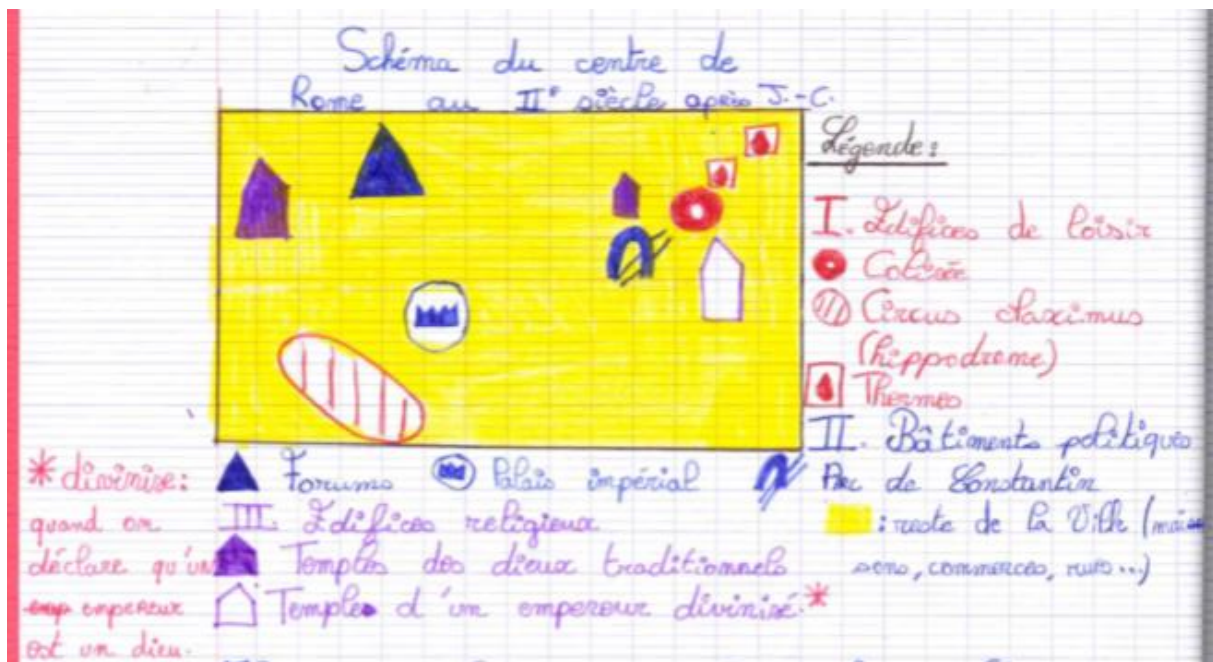 Schéma du centre de
Rome au IIe siècle après J.-C.
Légende :
I. Edifices de loisir
Colisée
Circus Maximus
(hippodrome)
Thermes
II. Bâtiments politiques
Forums
Palais impérial
Arc de Constantin
: reste de la Ville (mai-
sons, commerces, rues...)
III. Edifices religieux
Temples des dieux traditionnels
Temple d'un empereur divinisé.*
* divinise :
quand on
déclare qu'un
empereur
est un dieu.